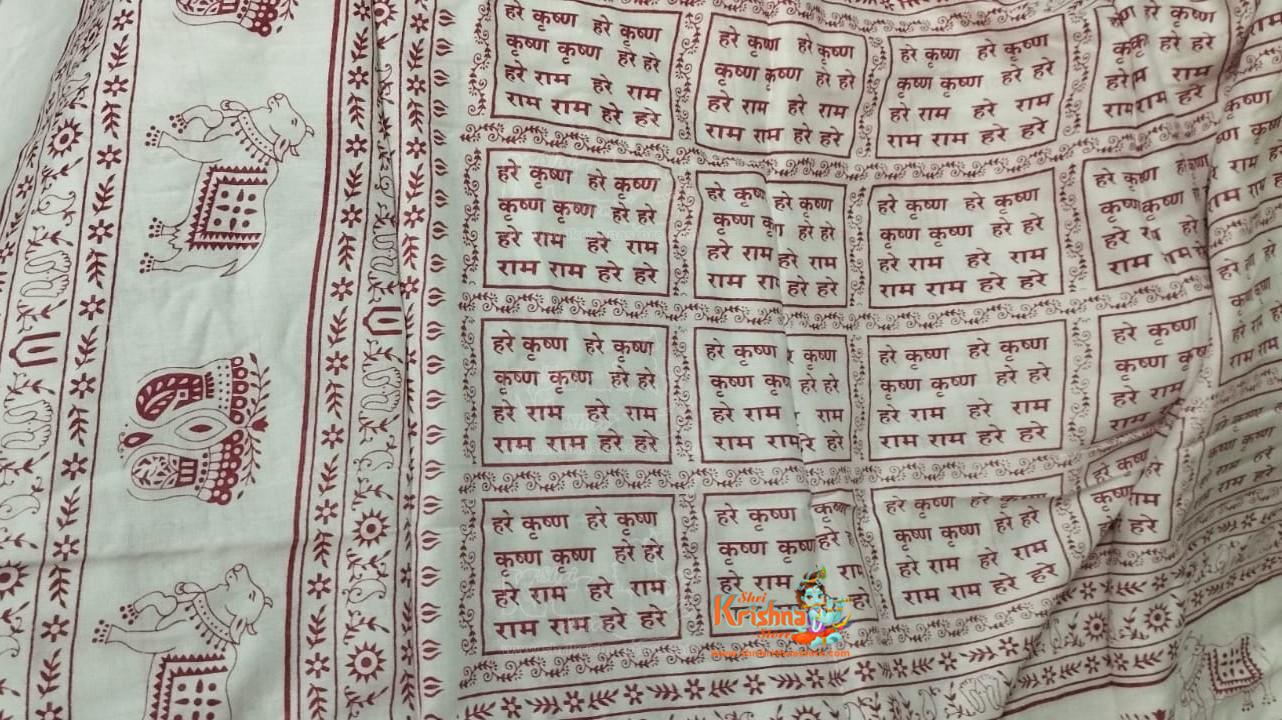 हरे कृष्ण हरे कृष्ण
कृष्ण कृष्ण हरे हरे
हरे राम हरे राम
राम राम हरे हरे
हरे कृष्ण हरे कृष्ण
कृष्ण कृष्ण हरे हरे
हरे राम हरे राम
राम राम हरे हरे
हरे कृष्ण हरे कृष्ण
कृष्ण कृष्ण हरे हरे
हरे राम हरे राम
राम राम हरे हरे
हरे कृष्ण
हरे हरे
हरे राम
राम हरे
हरे कृष्ण हरे कृष्ण
कृष्ण कृष्ण हरे हरे
हरे राम हरे राम
राम राम हरे हरे
हरे कृष्ण हरे कृष्ण
कृष्ण हरे हरे
हरे राम हरे राम
राम हरे हरे
हरे कृष्ण हरे कृष्ण
कृष्ण कृष्ण हरे हरे
हरे राम हरे राम
राम राम हरे हरे
हरे
कृष्ण हरे
हरे हरे
राम
हरे कृष्ण हरे कृष्ण
कृष्ण कृष्ण हरे हरे
हरे राम हरे राम
राम राम हरे हरे
हरे कृष्ण कृष्ण
कृष्ण हरे हरे
हरे राम राम
राम हरे
हरे कृष्ण हरे कृष्ण
कृष्ण कृष्ण हरे हरे
हरे राम हरे राम
राम राम हरे हरे
हरे कृष्ण
कृष्ण
हरे राम
राम राम
हरे कृष्ण हरे कृष्ण
कृष्ण कृष्ण हरे हरे
हरे राम हरे राम
राम राम हरे हरे
हरे कृष्ण कृष्ण
कृष्ण हरे
हरे राम
हरे कृष्ण हरे
कृष्ण कृष्ण हरे हरे
हरे राम हरे राम
राम राम हरे हरे
हरे कृष्ण
कृष्ण राम
हरे
Shri
Krishna
Store